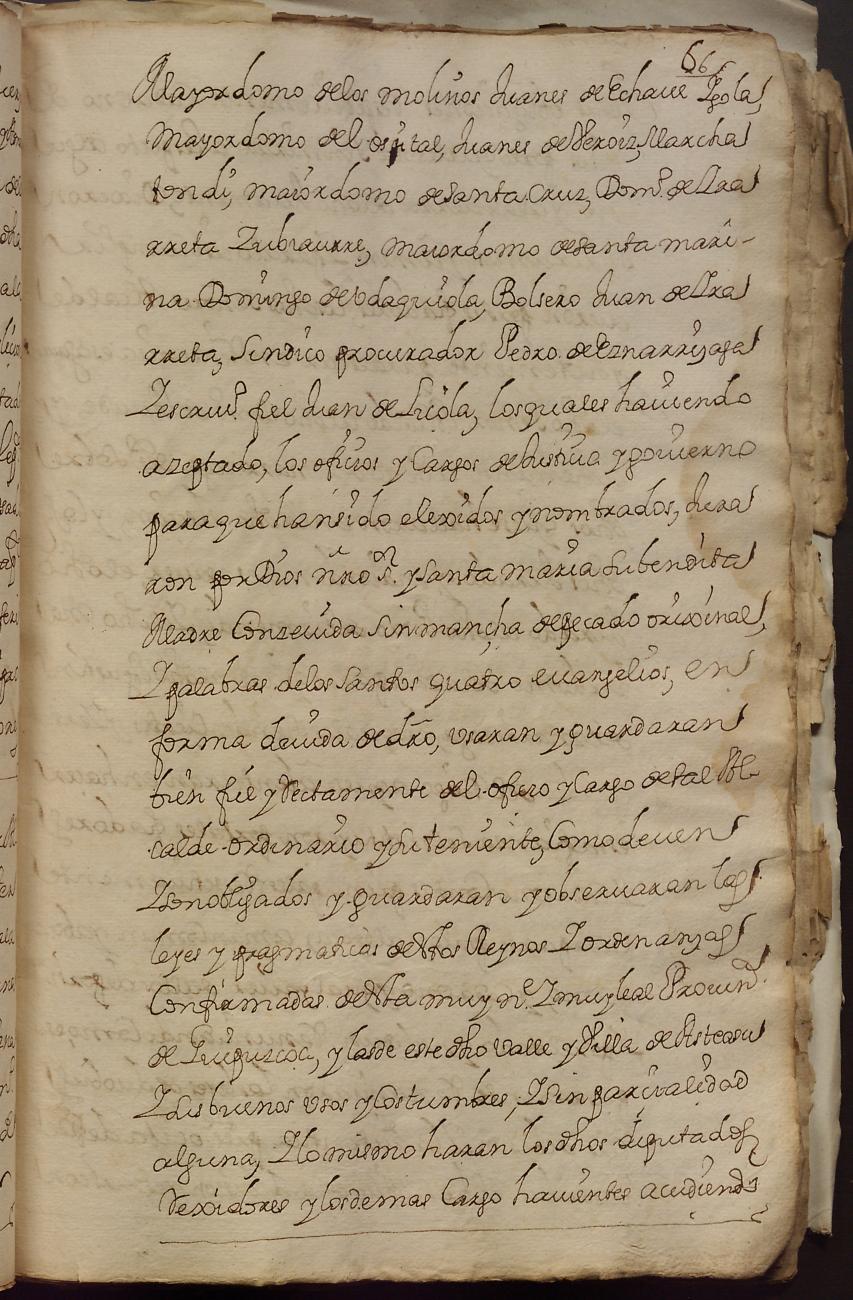 66
Mayordomo delos molinos Juanes de Echaue Ygola,
Mayordomo del ospital, Juanes de Veroiz, Marcha
tondi, maiordomo de santa Cruz, Dom.º de Lra
rreta Zubiaurre, maiordomo de santa mari-
na Domingo de Vdaquiola, Bolsero Juan de Lra
rreta, Sindico procurador Pedro de Eznarriaga
Y escriu.º fiel Juan de Soola, los quales hauiendo
azeptado, los oficios y Cargos de Justicia y gouierno
para que han sido elexidos y nombrados, Jura
ron por Dios nr̃o s.ʳ y santa maria su bendita
Madre Conzeuida sin mancha de pecado orixinal,
Y palabras delos santos quatro euangelios, en
forma deuida de dr̃o, vsaran y guardaran
bien fiel y Rectamente del oficio y Cargo de tal Al-
calde ordinario y su teniente, Como deuen
Y son obligados y guardaran y obseruaran las
leyes y pragmaticas destos Reynos Y ordenanzas
Confirmadas desta muy n.e Y muy leal Prouin.ª
de Guipuzcoa, y las de este dho valle y Villa de Asteasu
Y sus buenos vsos y Costumbres, Y sin parcialidad
alguna, Y lo mismo haran los dhos diputados
Rexidores y los demas Cargo hauientes acudiendo